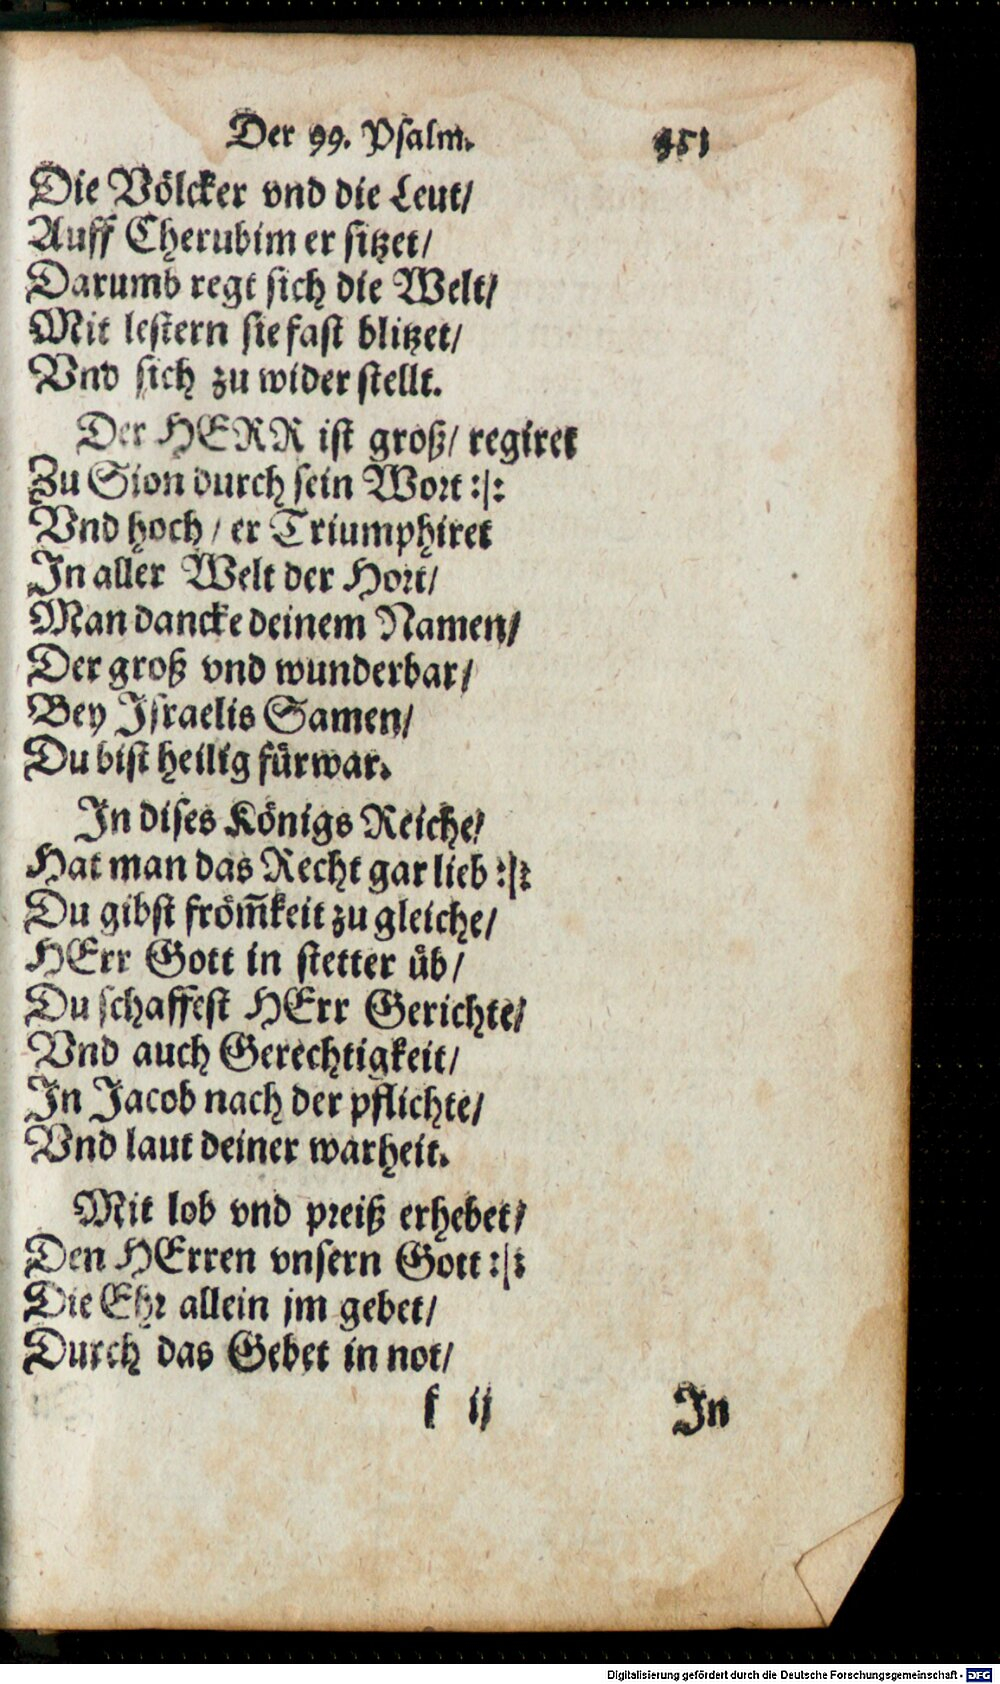 Der 99. Psalm. 951
Die Völcker vnd die Leut/
Auff Cherubim er sitzet/
Darumb regt sich die Welt/
Mit lestern sie fast blitzet/
Vnd sich zu wider stellt.
Der HERR ist groß/ regiret
Zu Sion durch sein Wort :|:
Vnd hoch / er Triumphiret
In aller Welt der Hort/
Man dancke deinem Namen/
Der groß vnd wunderbar/
Bey Israelis Samen/
Du bist heilig fürwar.
In dises Königs Reiche/
Hat man das Recht gar lieb :|:
Du gibst from̃keit zu gleiche/
HErr Gott in stetter üb/
Du schaffest HErr Gerichte/
Vnd auch Gerechtigkeit/
In Jacob nach der pflichte/
Vnd laut deiner warheit.
Mit lob vnd preiß erhebet/
Den HErren vnsern Gott :|:
Die Ehr allein jm gebet/
Durch das Gebet in not/
k ij In
Digitalisierung gefördert durch die Deutsche Forschungsgemeinschaft - DFG